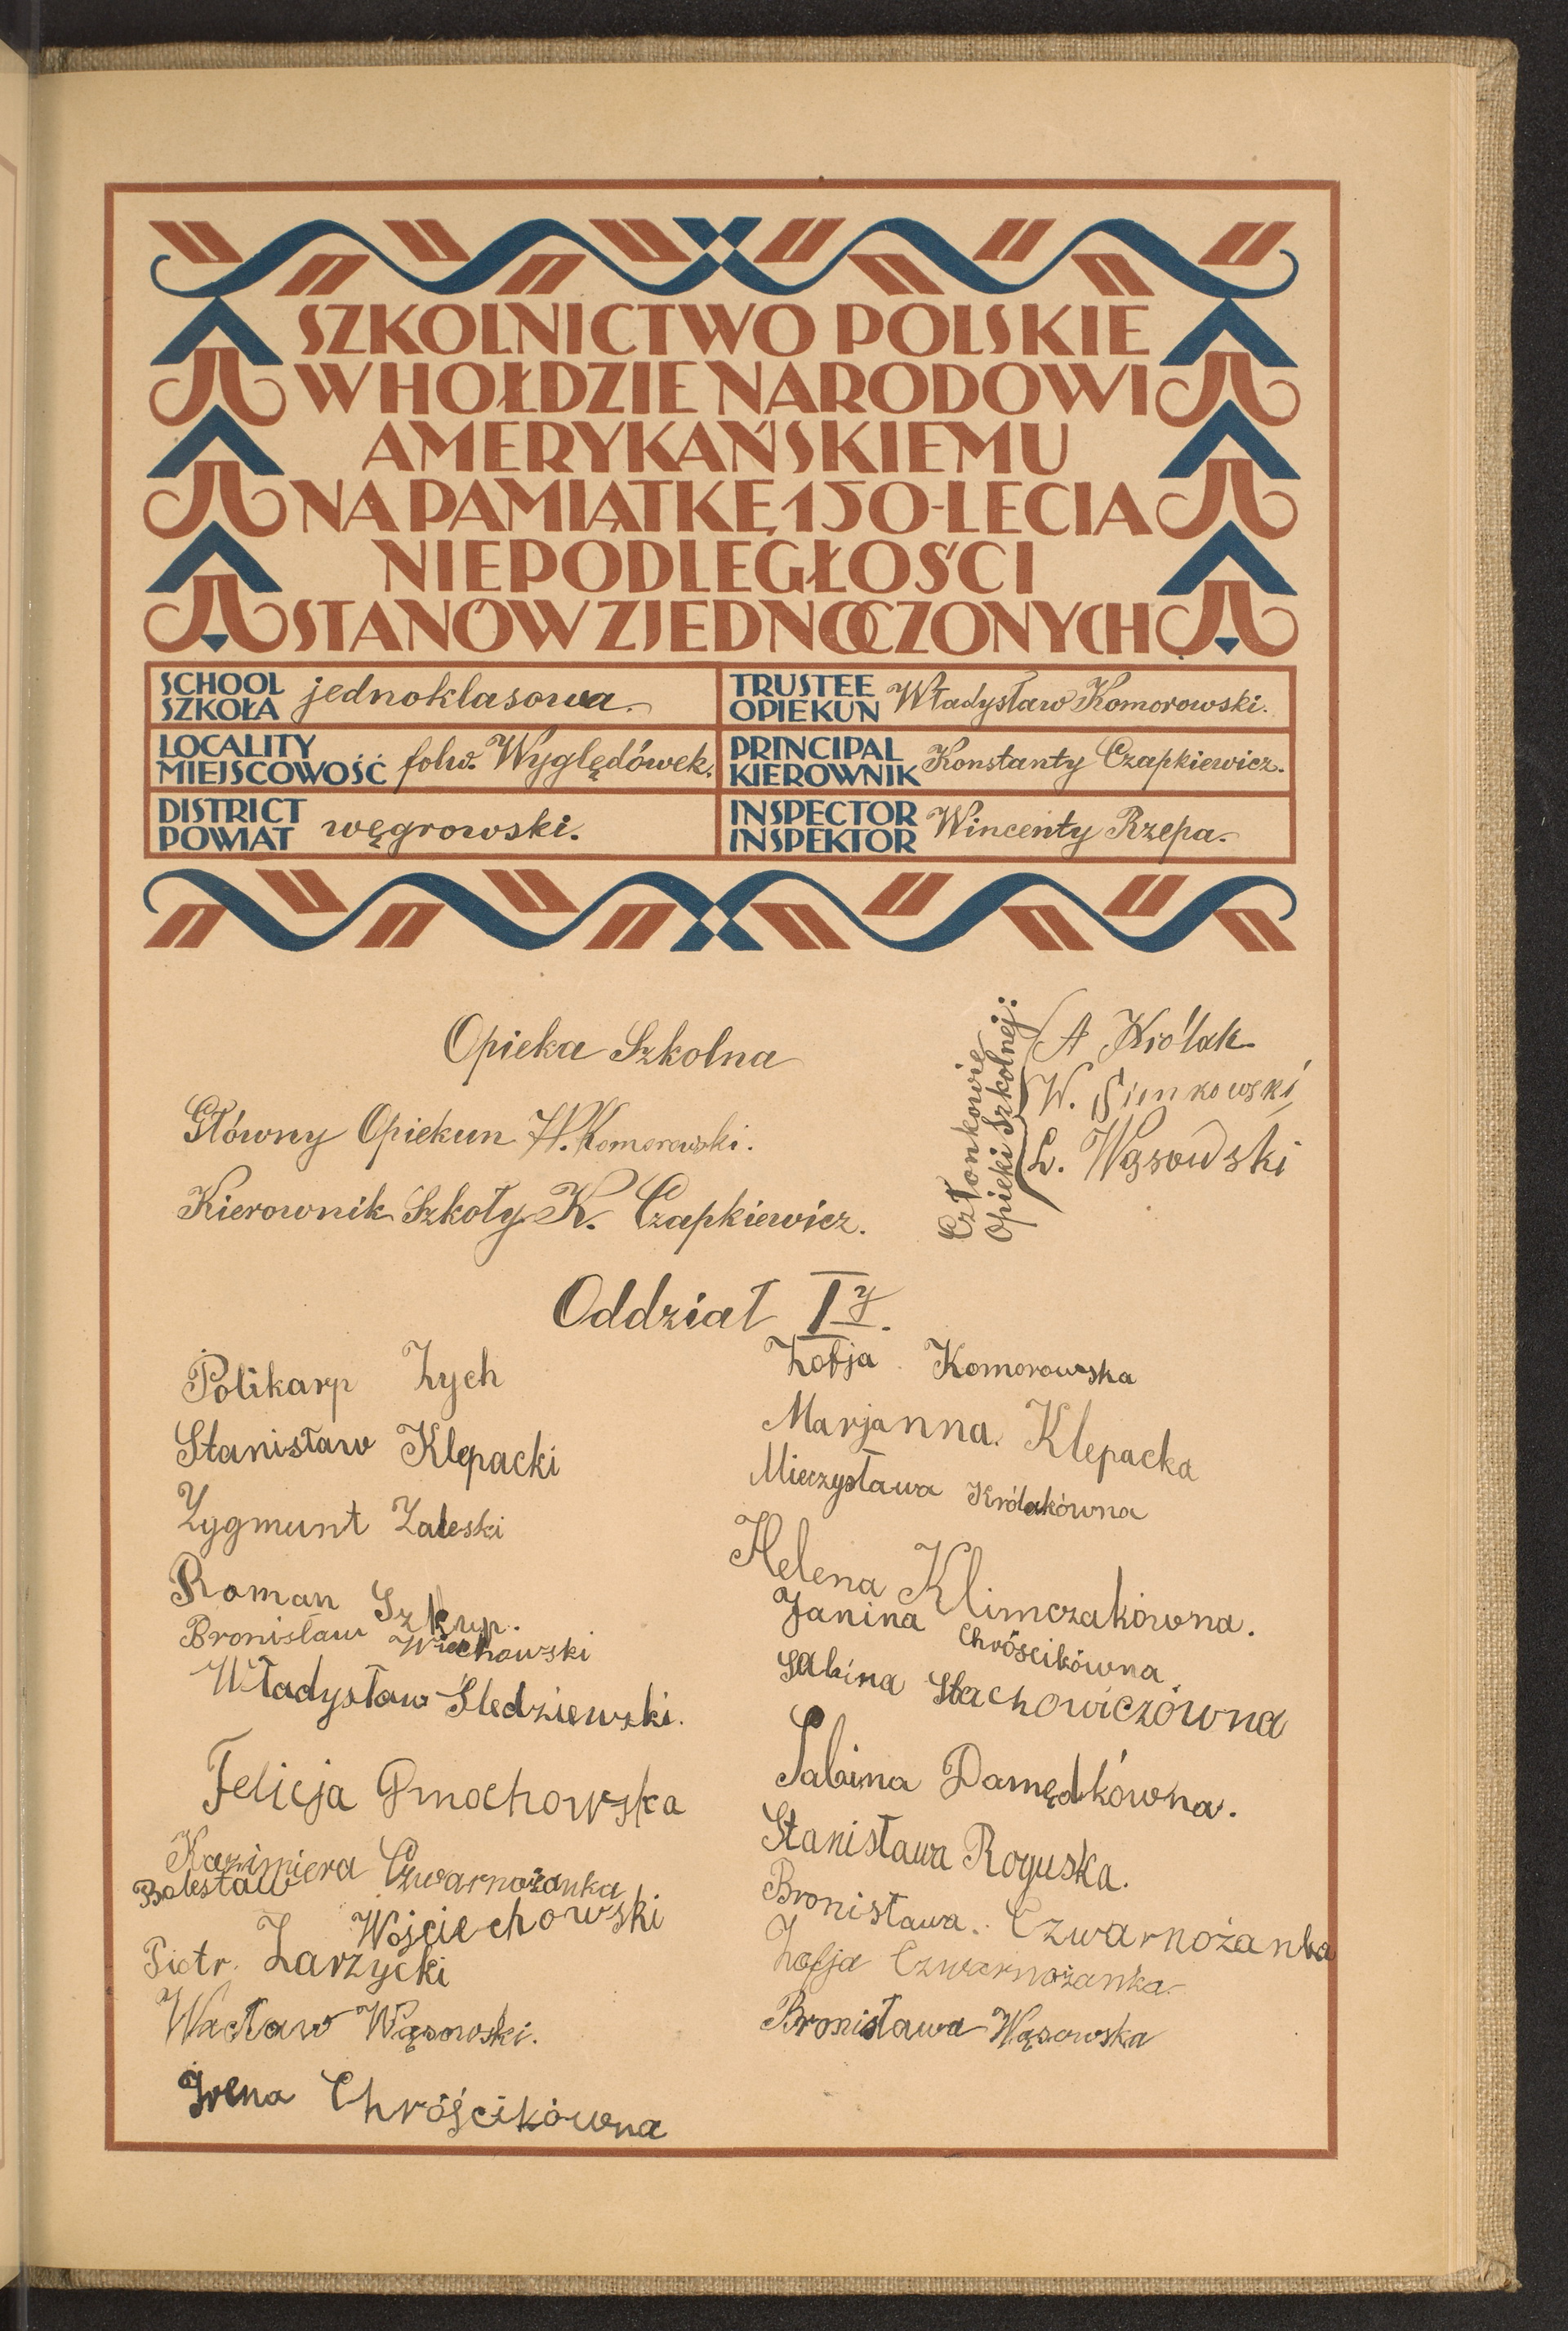 SZKOLNICTWO POLSKIE
W HOŁDZIE NARODOWI
AMERYKAŃSKIEMU
NA PAMIĄTKĘ 150-LECIA
NIEPODLEGŁOŚCI
STANÓW ZJEDNOCZONYCH
SCHOOL
SZKOŁA jednoklasowa.
TRUSTEE
OPIEKUN Władysław Komorowski.
LOCALITY
MIEJSCOWOŚĆ folw. Wyględówek.
PRINCIPAL
KIEROWNIK Konstanty Czapkiewicz.
DISTRICT
POWIAT węgrowski.
INSPECTOR
INSPEKTOR Wincenty Rzepa.
Opieka Szkolna
Główny Opiekun W. Komorowski.
Kierownik Szkoły K. Czapkiewicz.
Członkowie
Opieki Szkolnej:
A Królak
W. Sienkowski
L. Wąsowski
Oddział I y.
Polikarp Zych
Stanisław Klepacki
Zygmunt Zaleski
Roman Szkup.
Bronisław Wiechowski
Władysław Śledziewski.
Felicja Gmochowska
Kazimiera Czwarnożanka
Bolesław Wojciechowski
Piotr Zarzycki
Wacław Wąsowski.
Irena Chróścikówna
Zofja Komorowska
Marjanna. Klepacka
Mieczysława Królakówna
Helena Klimczakówna.
Janina Chróścikówna
Sabina Stachowiczówna
Sabina Damędkówna.
Stanisława Roguska.
Bronisława. Czwarnożanka
Zofja Czwarnożanka.
Bronisława Wąsowska